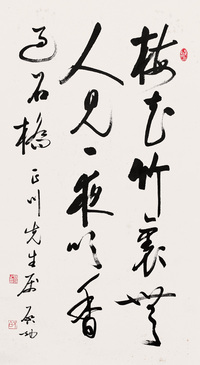 梅花竹裏無
人見一夜吹香
過石橋 正川先生属 启功